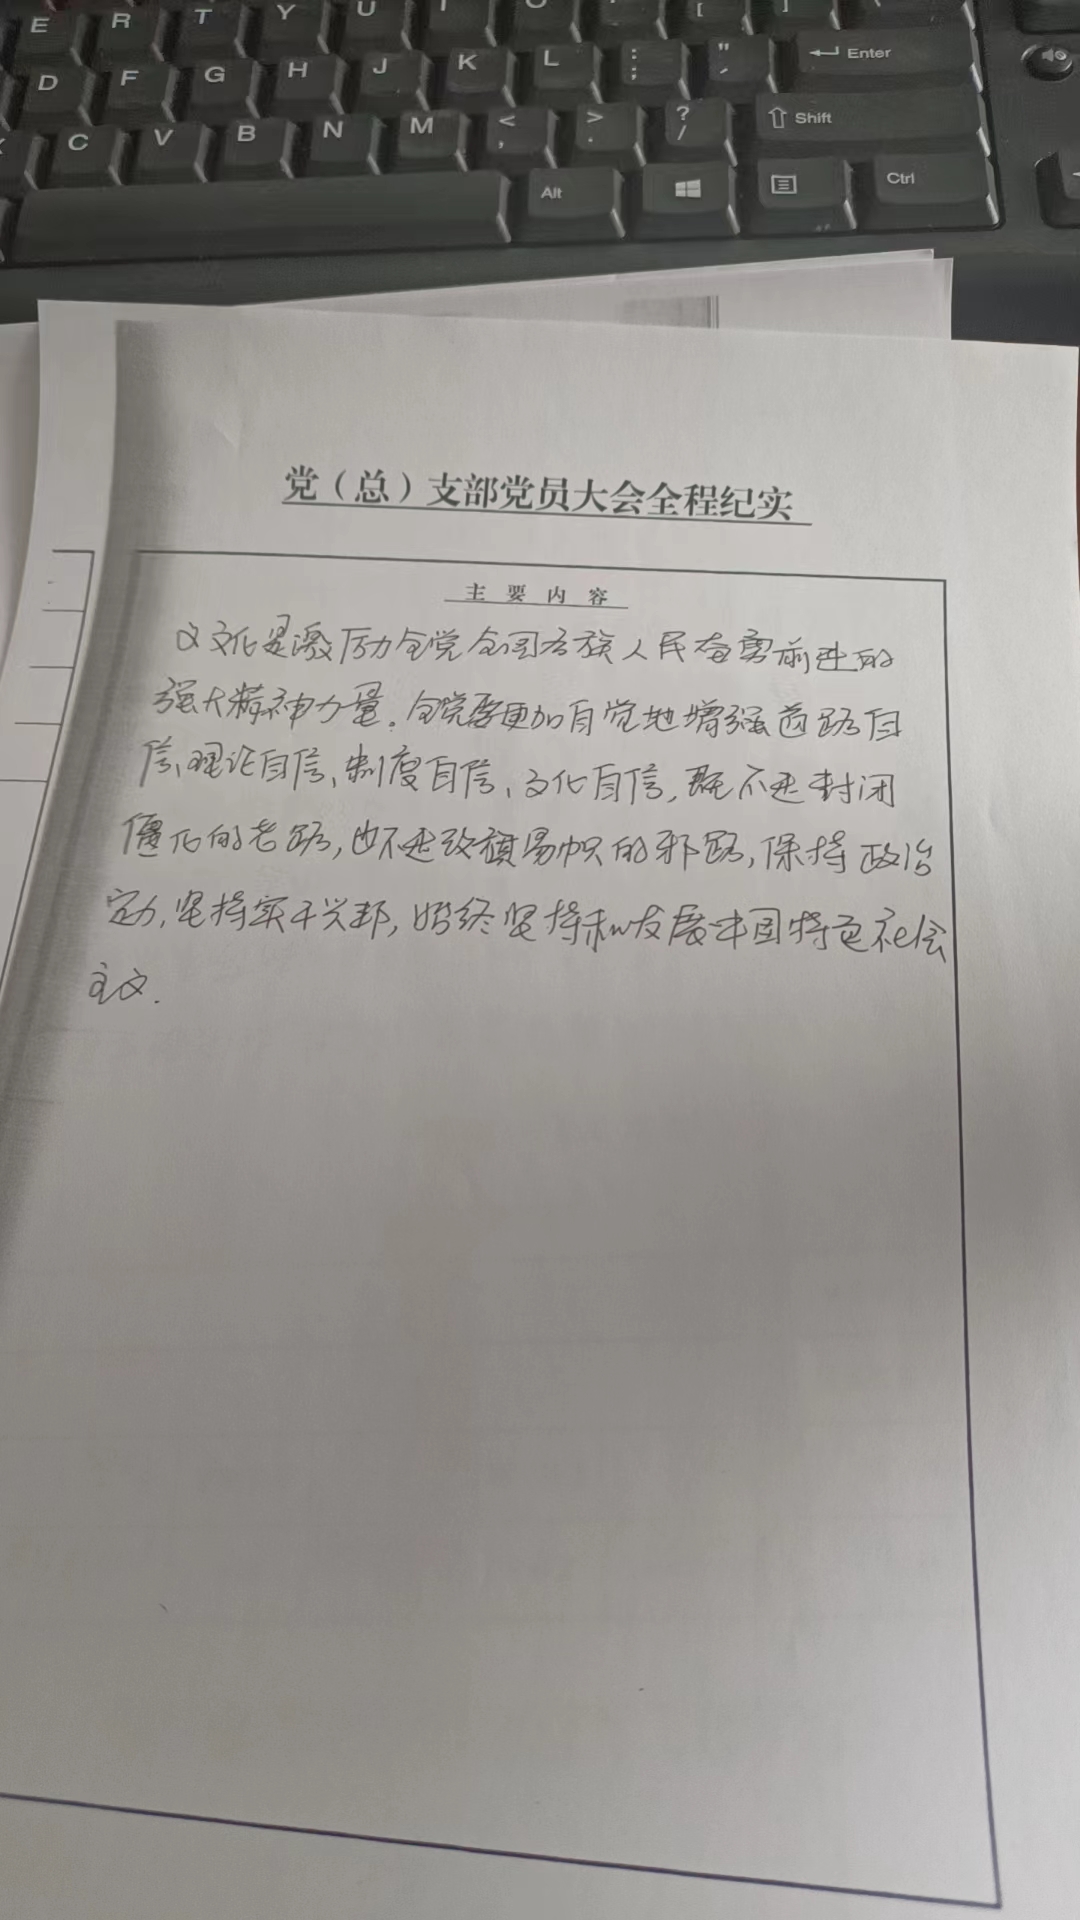 E R T Y U I O [ ]
D F G H J K L : ; " ' Enter
C V B N M < , > . ? / Shift
Alt Ctrl
党（总）支部党员大会全程纪实
主要内容
义文化是激励全党全国各族人民奋勇前进的
强大精神力量.全党要更加自觉地增强道路自
信、理论自信、制度自信、文化自信,既不走封闭
僵化的老路,也不走改旗易帜的邪路,保持政治
定力,坚持实干兴邦,始终坚持和发展中国特色社会
主义.